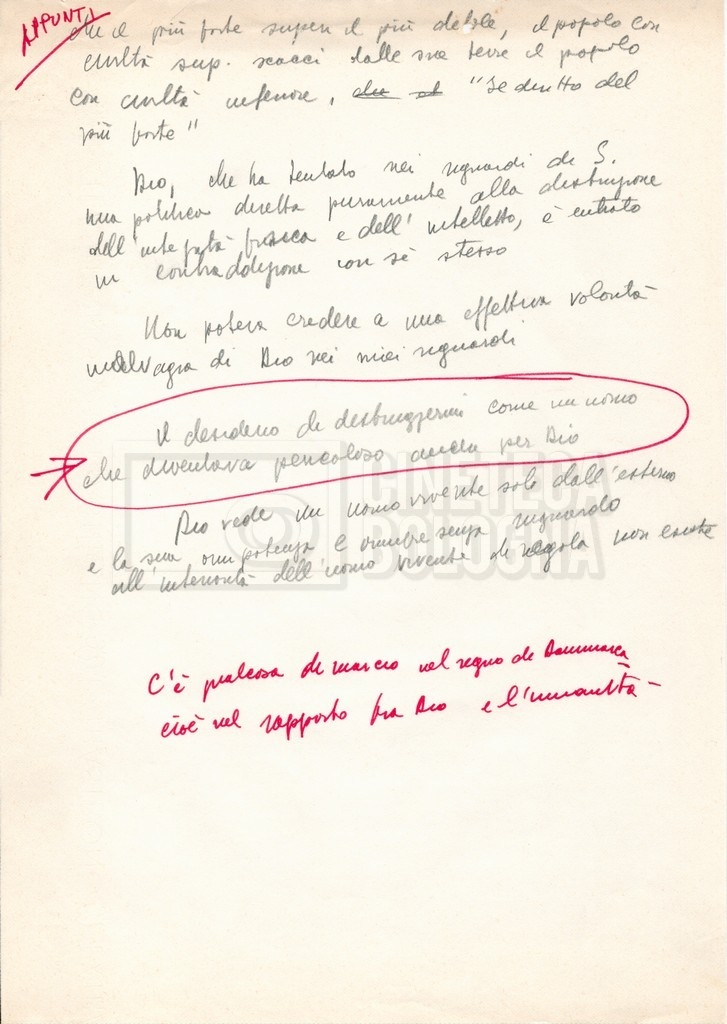 APPUNTI
che il più forte superi il più debole, il popolo con
civiltà sup. scacci dalle sue terre il popolo
con civiltà inferiore, che il "Il diritto del
più forte"
Dio, che ha tentato nei riguardi di S.
una politica diretta puramente alla distruzione
dell'integrità fisica e dell'intelletto, è entrato
in contraddizione con sè stesso
Non poteva credere a una effettiva volontà
malvagia di Dio nei miei riguardi
Il desiderio di distruggermi come un uomo
che diventava pericoloso anche per Dio
Dio vede un uomo vivente solo dall'esterno
e la sua onnipotenza e senza riguardo
all'interiorità dell'uomo vivente di regola non esiste
C'è qualcosa di marcio nel regno di Danimarca
cioè nel rapporto fra Dio e l'umanità
CINETECA
BOLOGNA